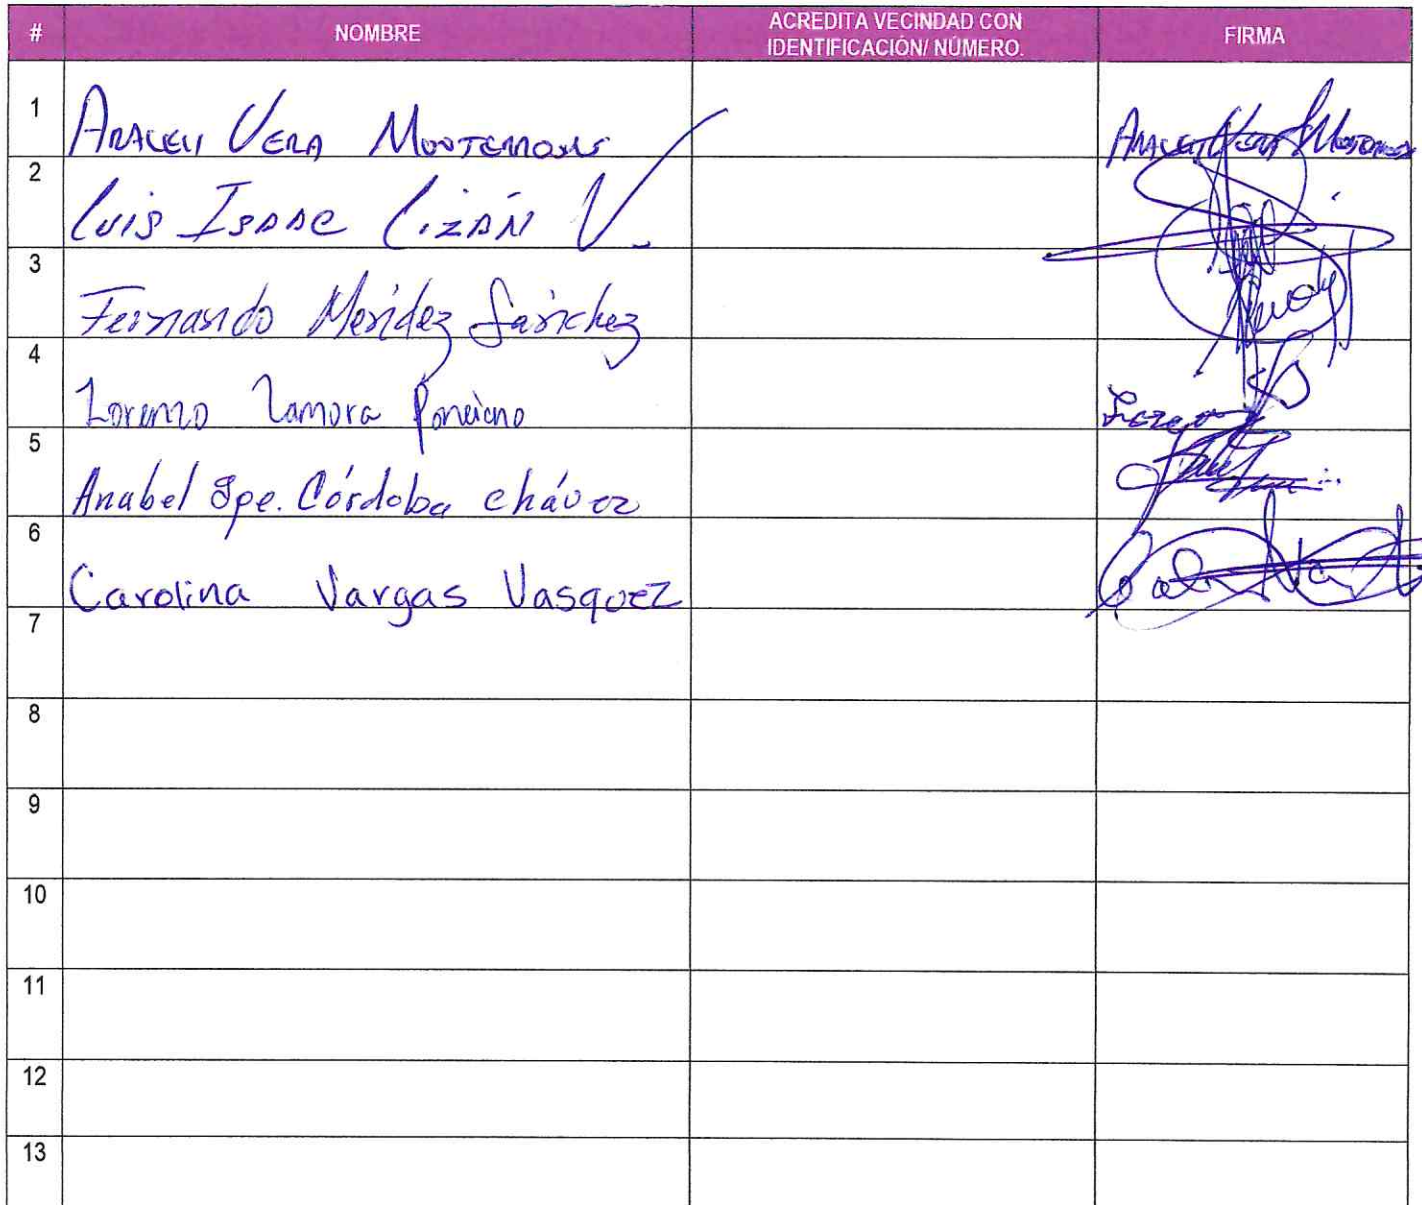 # NOMBRE ACREDITA VECINDAD CON IDENTIFICACIÓN/ NÚMERO. FIRMA
1 Araceli Vera Monterrosas Araceli Vera Monterrosas
2 Luis Isaac Lizán V.
3 Fernando Méndez Sánchez
4 Lorenzo Zamora Ponciano
5 Anabel Gpe. Córdoba Chávez
6 Carolina Vargas Vasquez
7
8
9
10
11
12
13